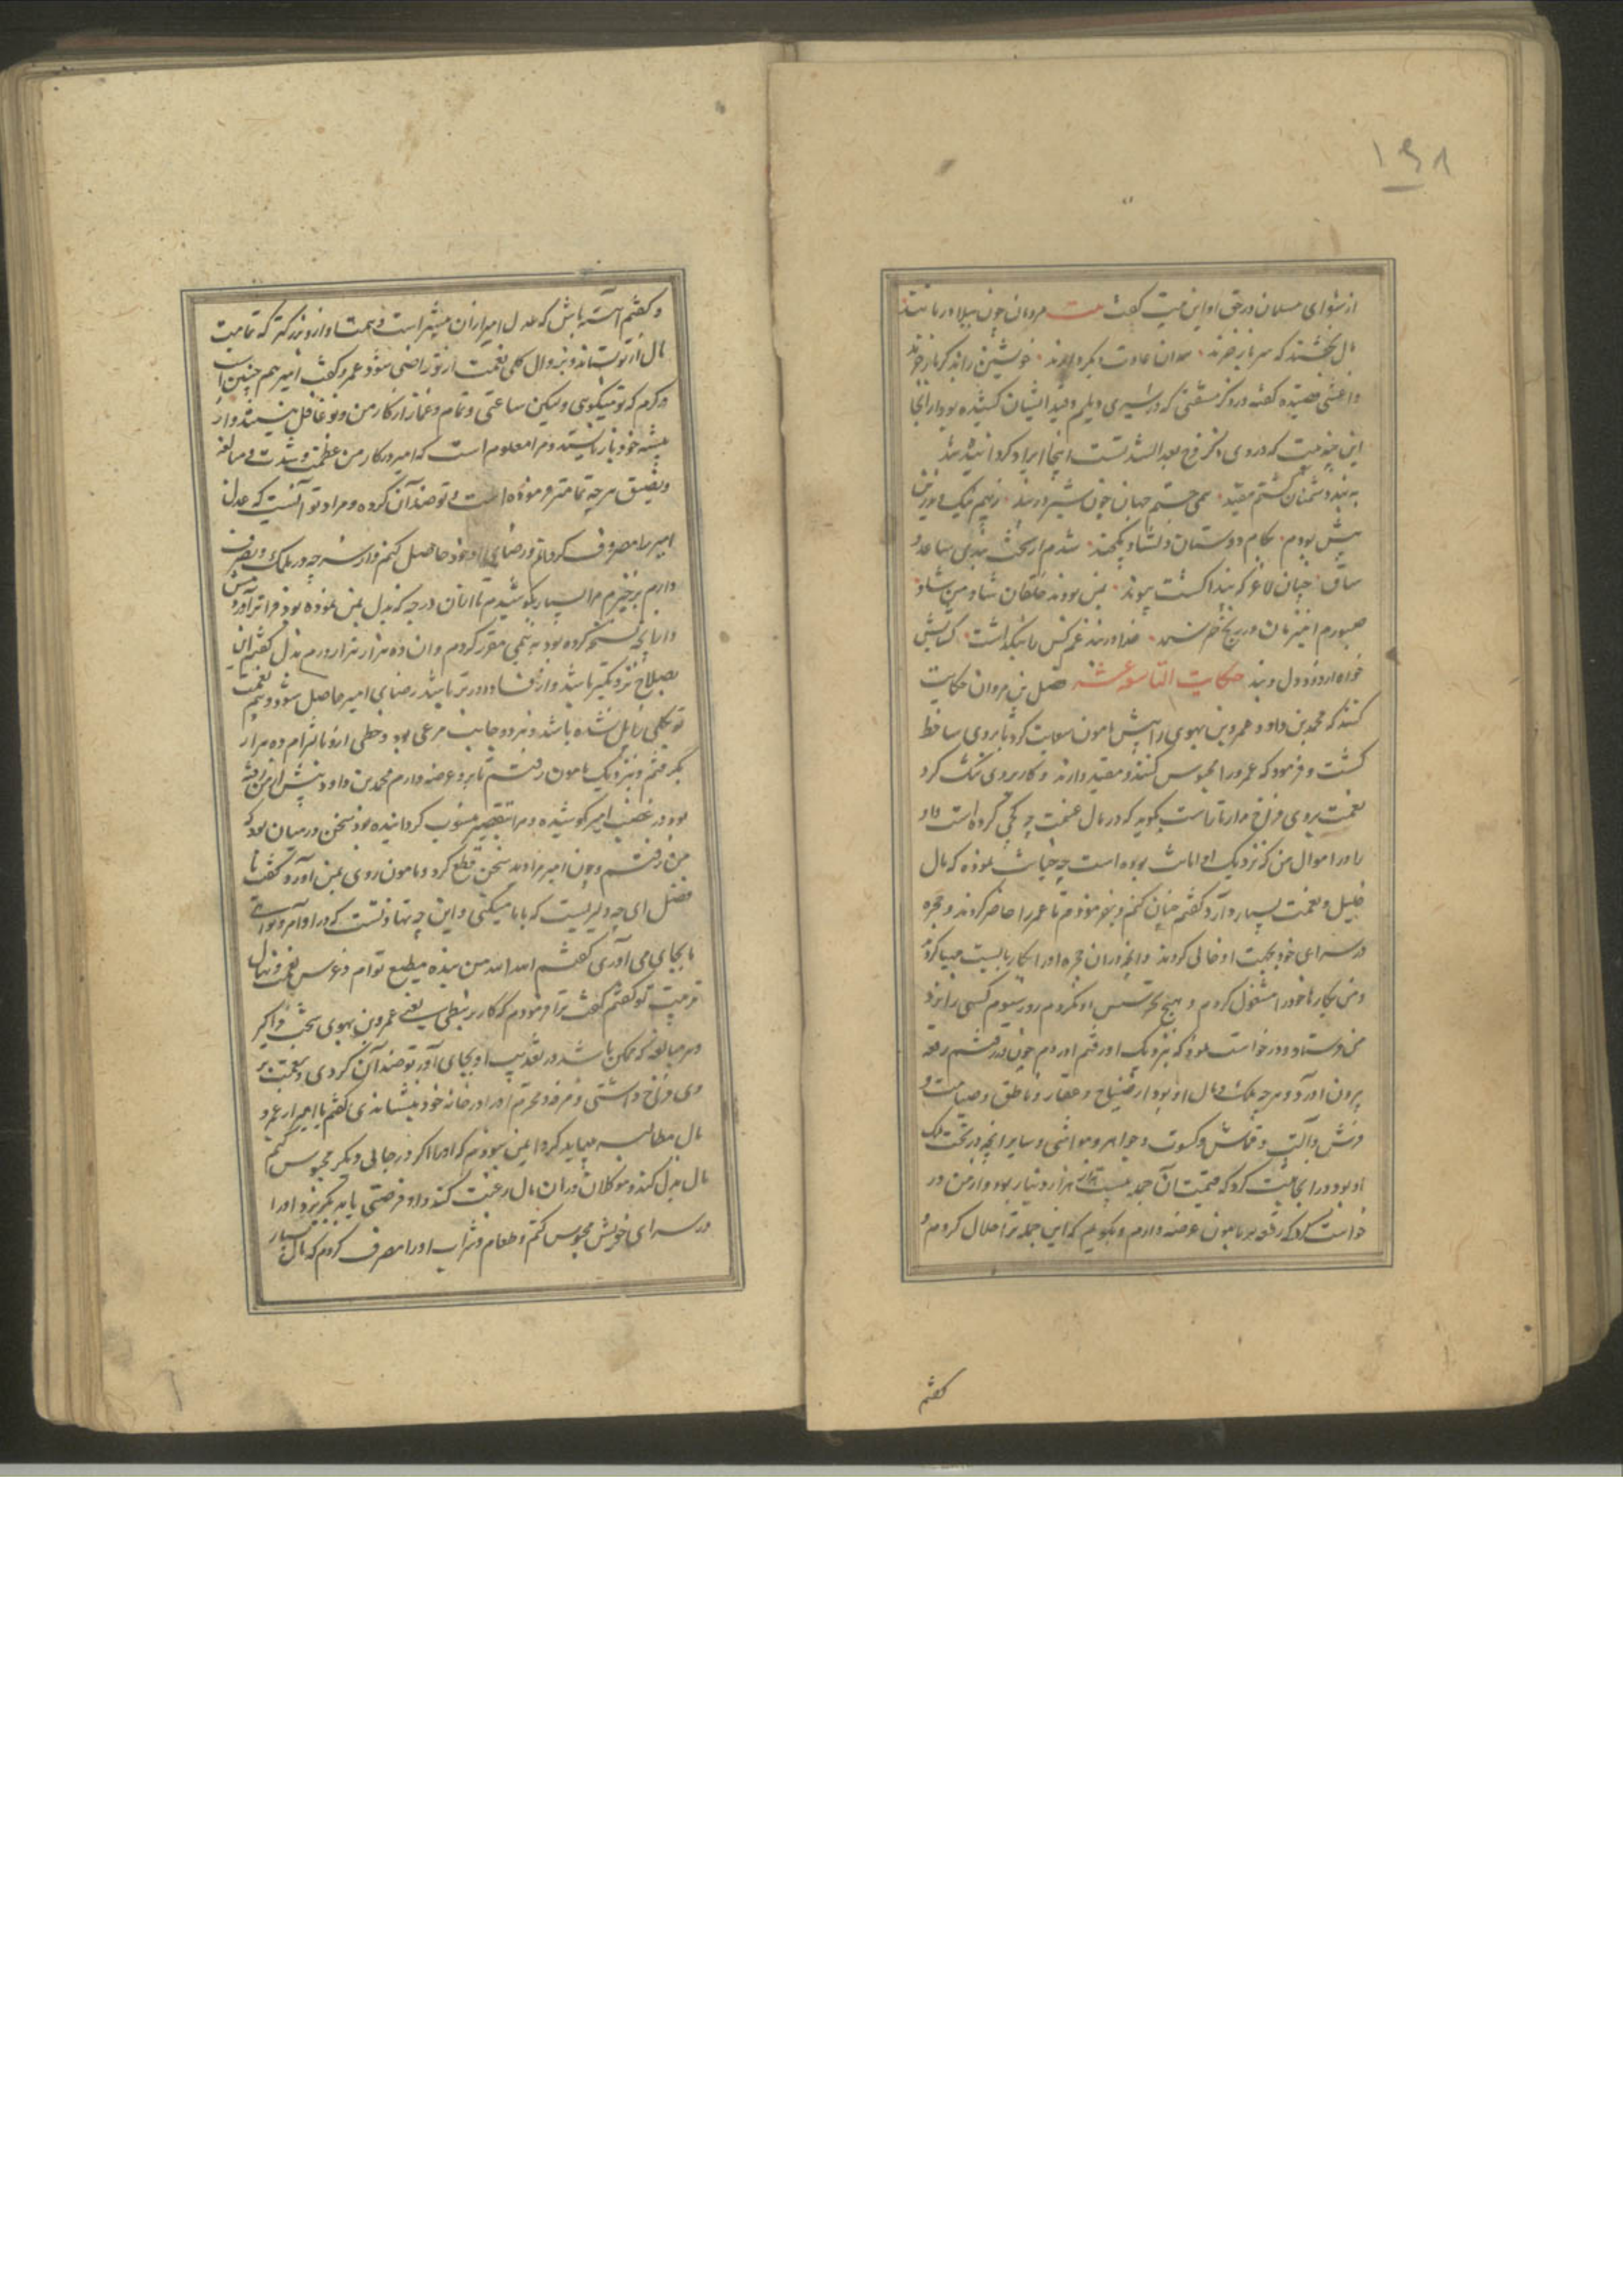 ۱۹۸
از شعرای مسلمان در حق او این بیت گفت بیت مردمان چون ببلا در مانند
مال بخشند که سر باز خرند خویشتن را
واعشی قصیده گفته در ذکر مشقتی که در اسیری دیلم و قید ایشان کشیده بود و از آنجا
این چند بیت که در وی ذکر فرج بعد الشدتست اینجا ایراد کرده شد
به بند دشمنان گشتم مقید همی جستم جهان چون شیر در بند
پیش بودم بکام دوستان دلشاد شدم از سخت بندی ساعد و
ساق چنان لاغر که بند انگشت پیوند بمن بودند خلقان شاد و من شاد
صبورم اندر رنج خرسند خداوندند غم کس را نگذاشت گشایش
خواه ازو و دل درو بند حکایت التاسعة عشر فضل بن مروان حکایت
کند که محمد بن داود عمرو بن بهوی را پیش مامون سعایت کرد تا بر وی ساخط
گشت و فرمود که عمرو را محبوس کنند و مقید دارند و کار بر وی تنگ کرد
نعمت بر وی فراخ مدار تا راست بگوید که در مال غنیمت چه کجی کرده است و او
را در اموال من که نزدیک او امانت بوده است چه خیانت نموده که مال
جلیل و نعمت بسیار دارد گفتم چنان کنم و بفرمودم تا عمرو را حاضر کردند و حجره
در سرای خود بجهت او خالی کردند و آنچه در آن حجره او را بکار بایست مهیا کرد
و من بکارها خود را مشغول کردم و هیچ تجسس او نکردم روز سیوم کسی را نزد
من فرستاد و درخواست نمود که نزدیک او رفتم او را دیدم چون در رفتم رقعه
بیرون آورد و هر چه ملک و مال او بود از ضیاع و عقار و ناطق و صامت و
فرش و آلت و قماش و کسوت و جواهر و مواشی و سایر آنچه در تحت ملک
او بود در آنجا ثبت کرد که قیمت آن جمله بیست هزار هزار دینار بود و از من در
خواست کرد که رقعه بر مامون عرضه دارم و بگویم که این جمله ترا حلال کردم و
گفتم
و گفتم آهسته باش که عدل امیر از آن بیشتر است و همت او از و بزرگتر که تمامیت
مال از تو بستاند و بزوال کلی نعمت از تو راضی شود عمرو گفت امیر هم چنین است
در کرم که تو میگوئی ولیکن ساعتی و نمام و غماز از کار من و تو غافل نیستند و از
پیشه خود باز نایستند و مرا معلوم است که امیر در کار من عظمت و شدت و مبالغه
و تضییق هر چه تمامتر فرموده است و تو ضد آن کرده و مراد تو آنست که عدل
امیر را مصروف گردانم و رضای او بخود حاصل کنم و از هر چه در ملک و تصرف
دارم برخیزم مرا بسیار بکوشیدم تا از آن درجه که بذل بمن نموده بود فراتر آورد مش
و از آنچه نسخه کرده بود به نیمی مقرر کردم و آن ده هزار هزار درم بذل گفتم این
بصلاح نزدیکتر باشد و از فساد دورتر باشد رضای امیر حاصل شود و هم نعمت
تو بکلی زایل نشده باشد و هر دو جانب مرعی بود و خطی ازو بالتزام ده هزار
بگرفتم و بنزدیک مامون رفتم تا برو عرضه دارم محمد بن داود پیش از من رفته
بود و در غضب امیر کوشیده و مرا بتقصیر منسوب گردانیده بود سخن در میان بود که
من رفتم و چون امیر مرا دید سخن قطع کرد و مامون روی بمن آورد و گفت یا
فضل ای چه دلیریست که با ما میکنی و این چه تهاونست که در اوامر و نواهی
ما بجای می آوری گفتم الله الله من بنده مطیع توام و غرس نعمت و نهال
تربیت تو گفتم گفت ترا فرمودم که کار بر نبطی یعنی عمرو بن بهوی سخت فراگیر
و هر مبالغه که ممکن باشد در تعذیب او بجای آور تو ضد آن کردی و نعمت بر
وی فراخ داشتی و مرفه و محترم او را در خانه خود بنشاندی گفتم یا امیر از عمرو
مال مطالبه میباید کرد ایمن نبودم که او را اگر در جائی دیگر محبوس کنم
مال بذل کند و موکلان در آن مال رغبت کنند و او فرصتی یابد بگریزد او را
در سرای خویش محبوس کنم و طعام و شراب او را مصرف کردم که مال بسیار